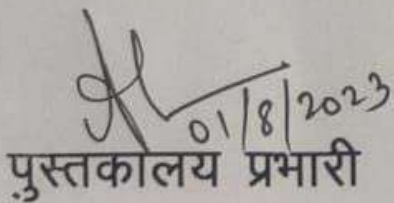 01/8/2023
पुस्तकालय प्रभारी